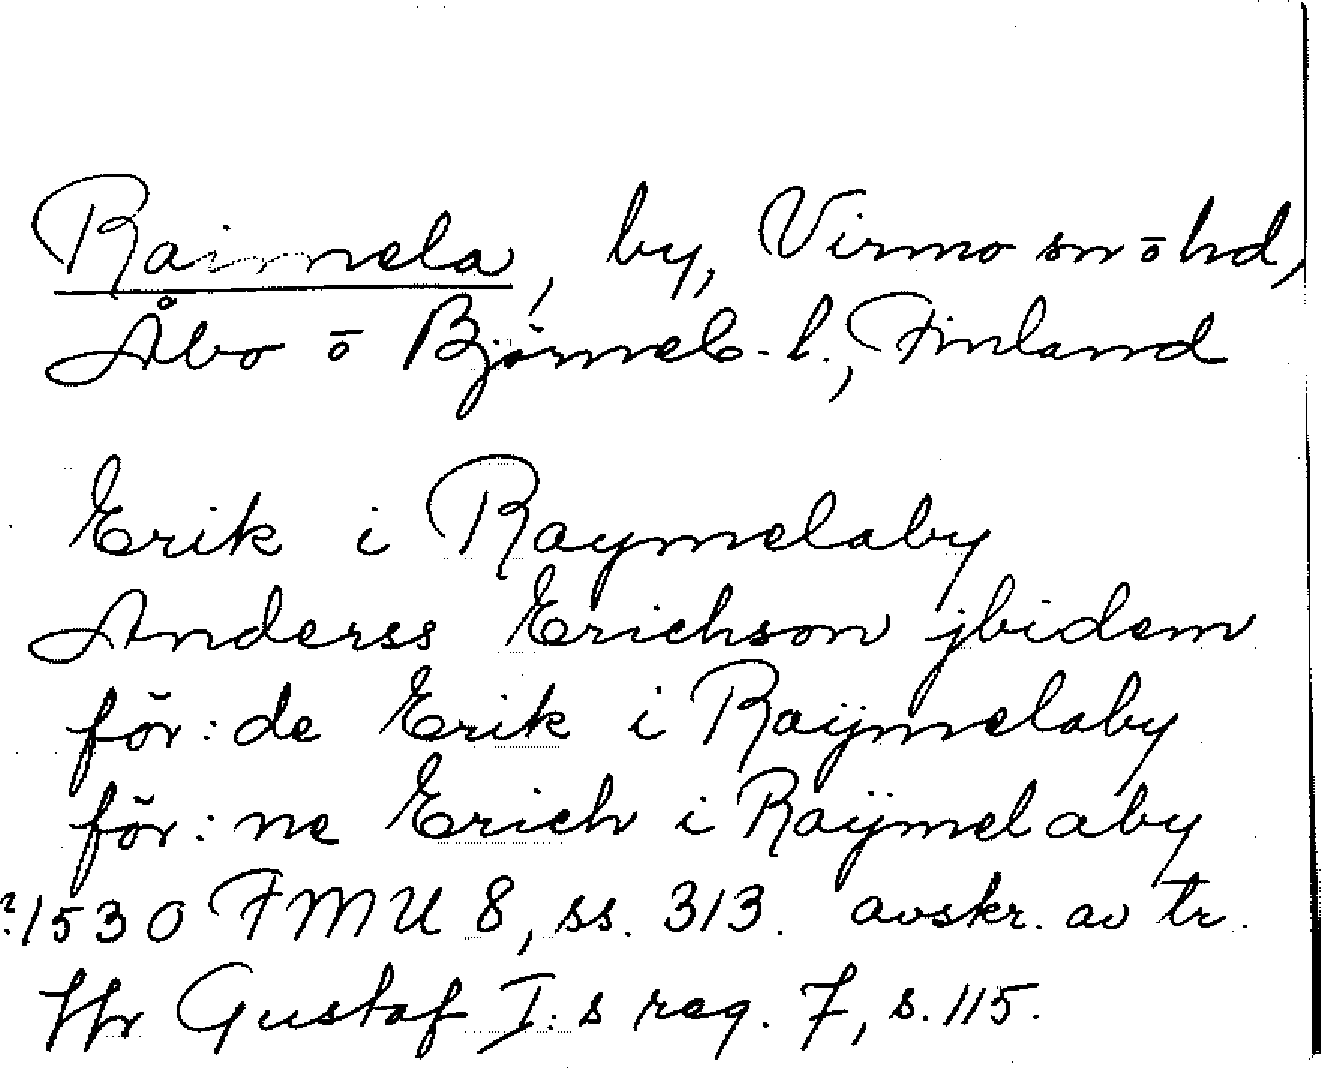 Raimela, by, Virmo sn o hd,
Åbo o Björneb. l., Finland
Erik i Raymelaby
Anderss Erichson jbidem
för:de Erik i Raÿmelaby
för:ne Erich i Raÿmelaby
1530 FMU 8, ss. 313. avskr. av tr.
fr Gustaf I:s reg. 7, s. 115.